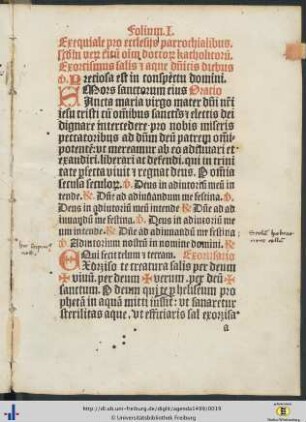 Folium. I.
Exequiale pro ecclesijs parrochialibus.
Exorcismus salis ⁊ aque dn̄icis diebus
Preciosa est in conspectu domini.
Mors sanctorum eius Oratio
Sancta maria virgo mater dn̄i nr̄i
jesu cristi cū om̄ibus sanctis ⁊ electis dei
dignare intercedere pro nobis miseris
peccatoribus ad dn̄m deū patrem omīpotentē
ut mereamur ab eo adiuuari et
exaudiri. liberari at defendi. qui in trinitate
pfecta viuit ⁊ regnat deus. P om̄ia
secula seculoꝝ. Deus in adiutoriū meū in
tende. Dn̄e ad adiuuandum me festina.
Deus in adiutoriū meū intende Dn̄e ad ad
iuuandū me festina. Deus in adiutoriū me
um intende. Dn̄e ad adiuuandū me festina
Adiutorium nostrū in nomine domini.
Qui fecit celum ⁊ terram. Exorcisatio
Exorciso te creatura salis per deum
✠ viuū. per deum ✠ verum. per deū ✠
sanctum. P deum qui te p heliseum prophetā
in aquā mitti iussit: vt sanaretur
sterilitas aque. vt efficiaris sal exorcisa
a
http://dl.ub.uni-freiburg.de/diglit/agenda1499/0019
© Universitätsbibliothek Freiburg